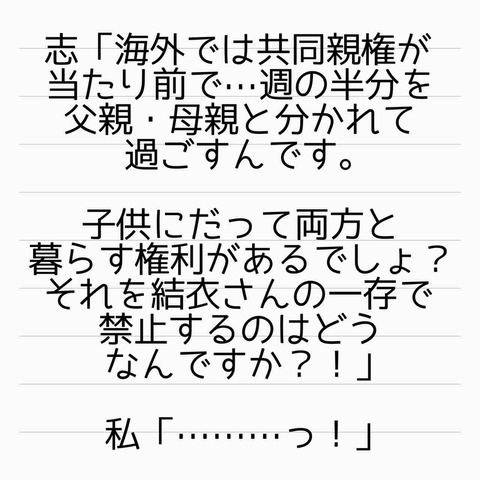 志「海外では共同親権が
当たり前で…週の半分を
父親・母親と分かれて
過ごすんです。
子供にだって両方と
暮らす権利があるでしょ？
それを結衣さんの一存で
禁止するのはどう
なんですか？！」
私「………っ！」